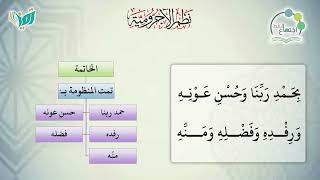 نظم الآجرومية
الخاتمة
تمت المنظومة بـ:
حمد ربنا
حسن عونه
رفده
فضله
منّه
بِحَمْدِ رَبِّنَا وَحُسْنِ عَوْنِهِ
وَرِفْدِهِ وَفَضْلِهِ وَمَنِّهِ